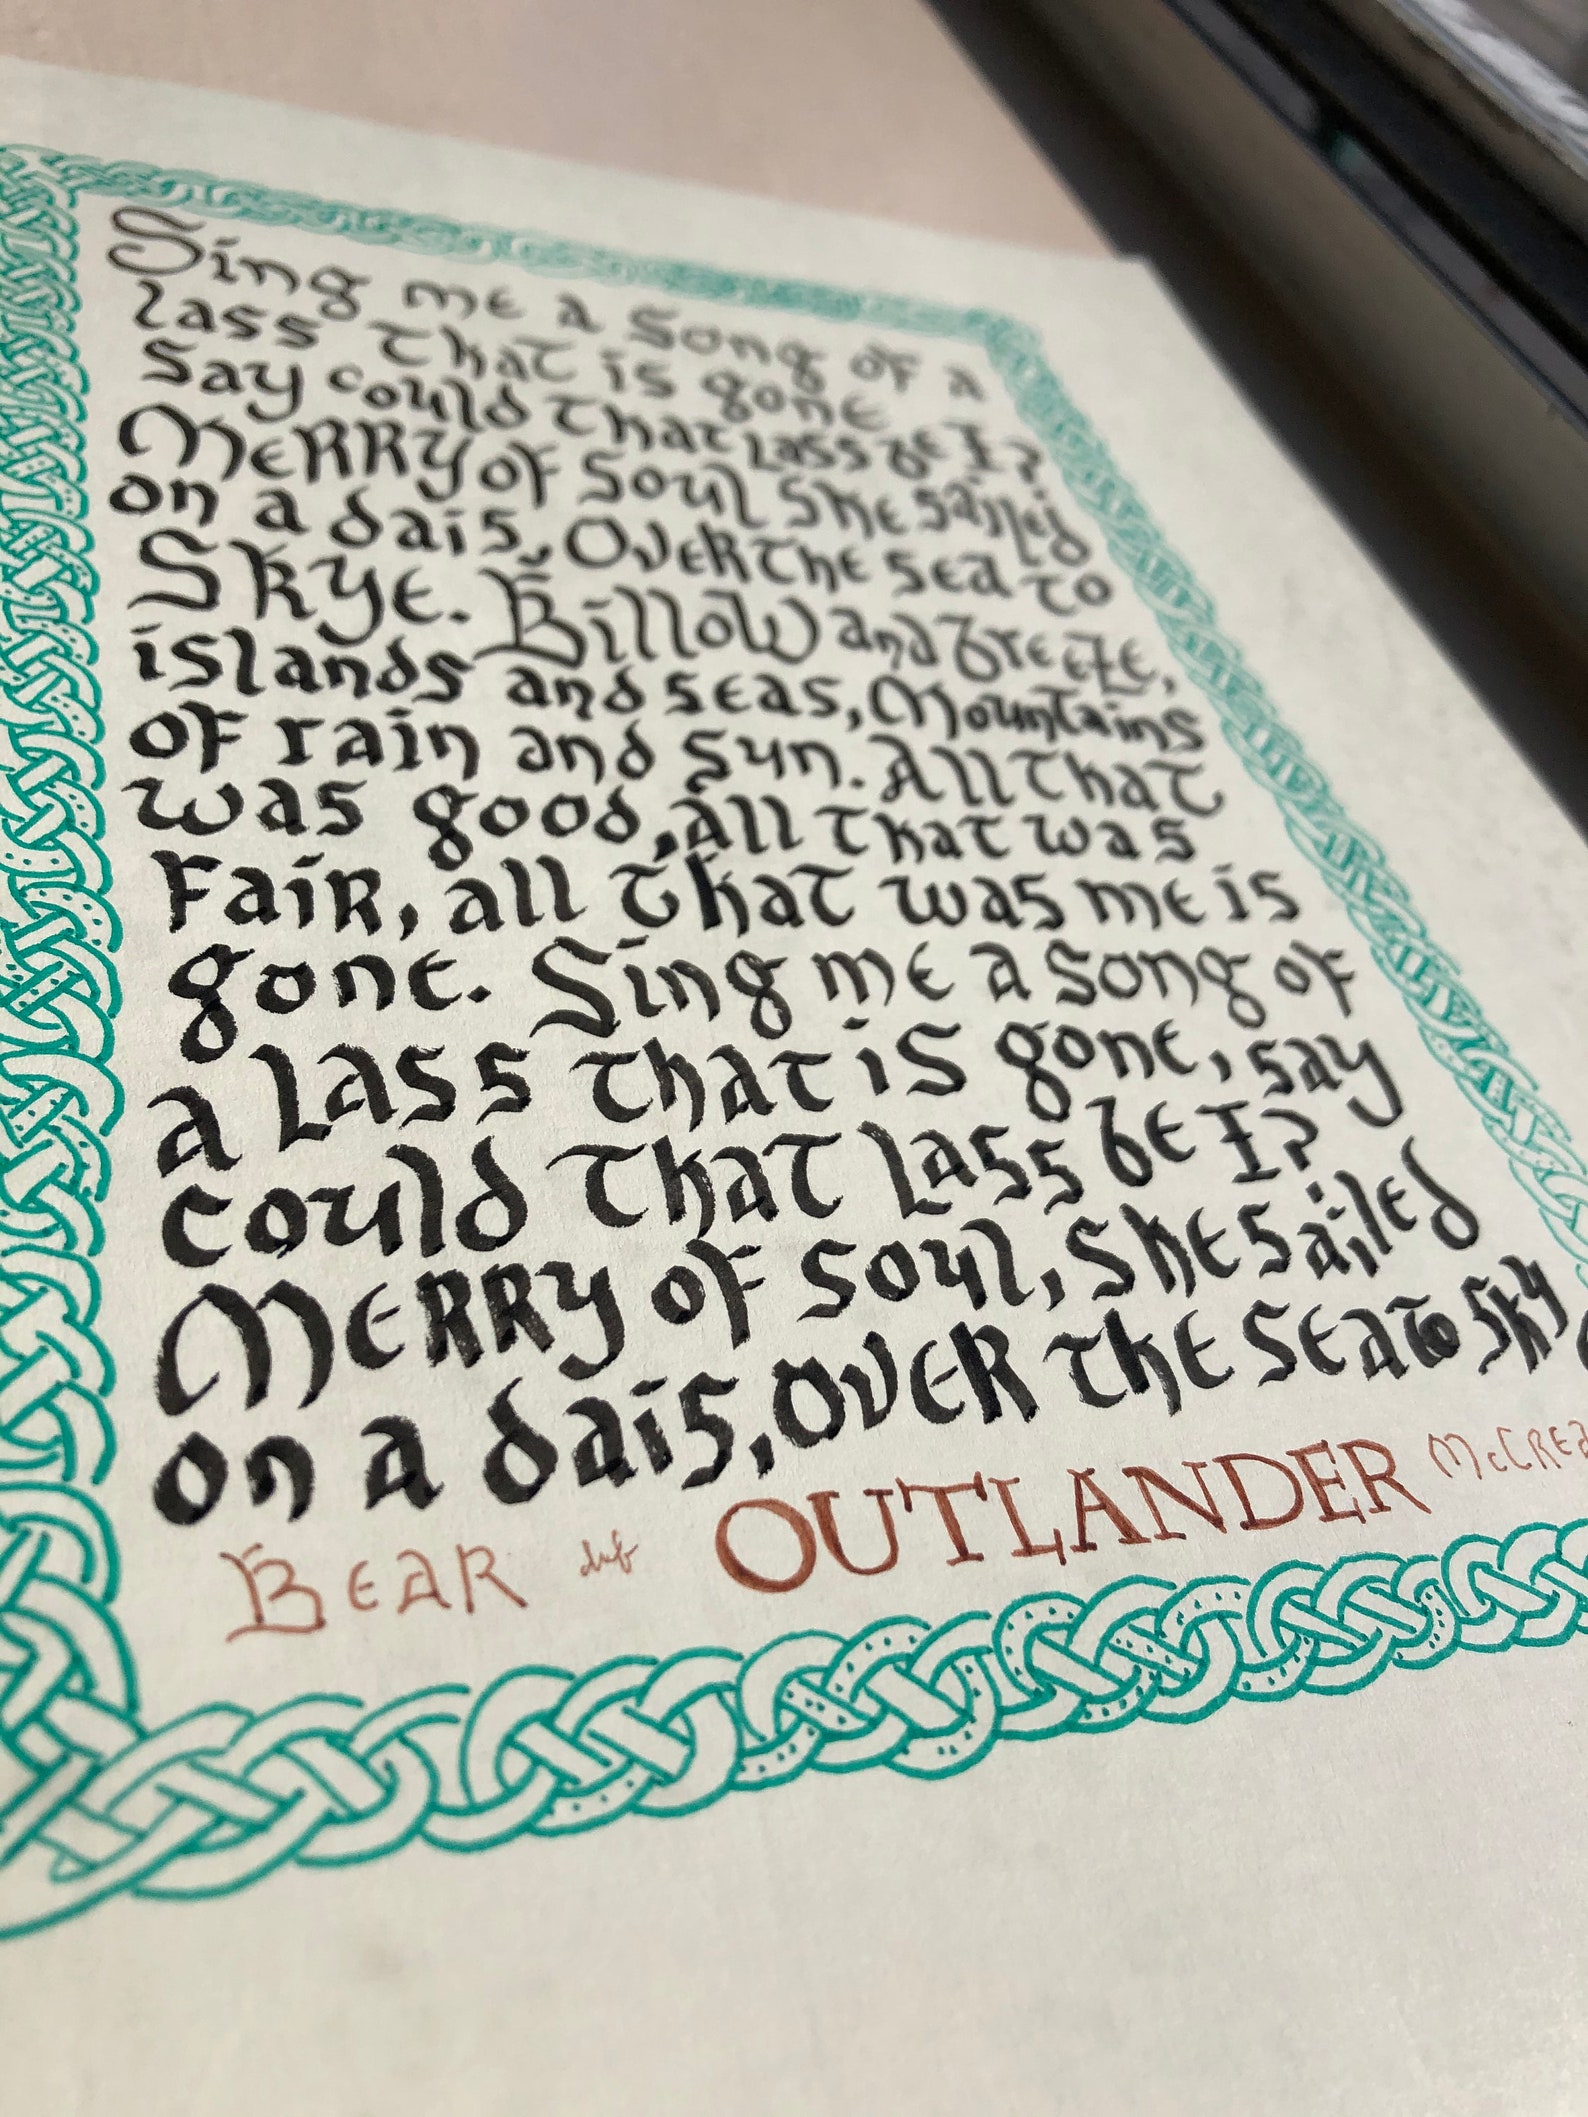 Sing me a song of a
lass that is gone
Say could that lass be I?
Merry of soul she sailed
on a dais, Over the sea to
Skye. Billow and breeze,
islands and seas, Mountains
of rain and sun. All that
was good, all that was
Fair, all that was me is
gone. Sing me a song of
a lass that is gone, say
could that lass be I?
Merry of soul, she sailed
on a dais, Over the sea to Sky
BEAR OUTLANDER McCREA